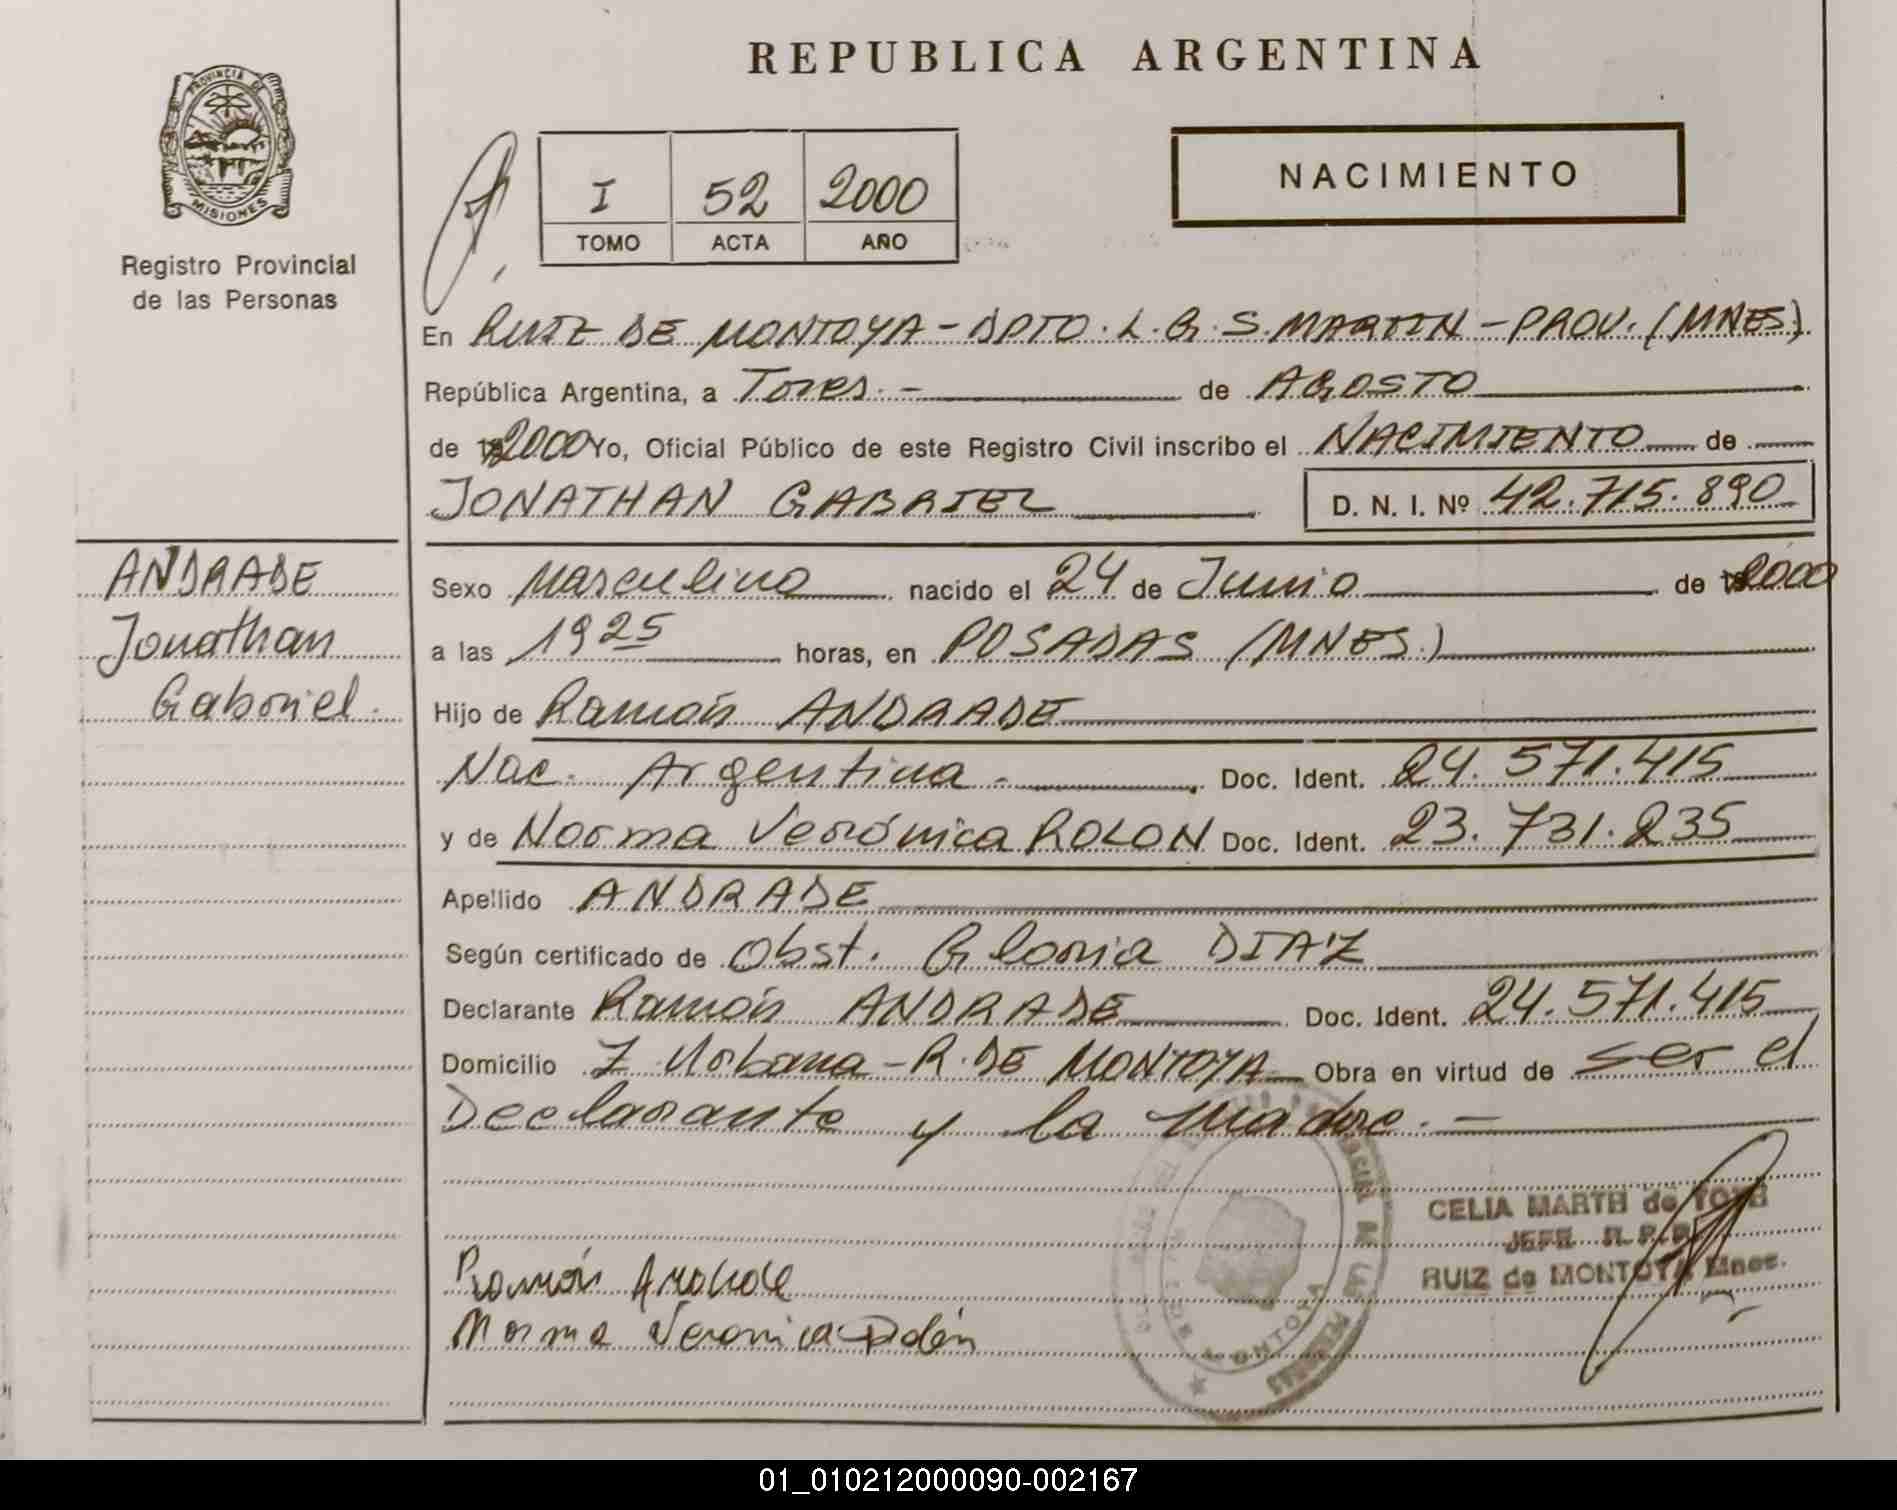 REPUBLICA ARGENTINA
PROVINCIA DE
MISIONES
Registro Provincial
de las Personas
I 52 2000
TOMO ACTA AÑO
NACIMIENTO
En RUIZ DE MONTOYA - DPTO. L. G. S. MARTIN - PROV. (MNES)
República Argentina, a Tores. - de AGOSTO
de 2000 Yo, Oficial Público de este Registro Civil inscribo el NACIMIENTO de
JONATHAN GABRIEL D. N. I. Nº 42.715.890
ANDRADE
Jonathan
Gabriel.
Sexo Masculino nacido el 24 de Junio de 2000
a las 19 25 horas, en POSADAS (MNES.)
Hijo de Ramón ANDRADE
Nac. Argentina. - Doc. Ident. 24.571.415
y de Norma Verónica ROLON Doc. Ident. 23.731.235
Apellido ANDRADE
Según certificado de Obst. Gloria DIAZ
Declarante Ramón ANDRADE Doc. Ident. 24.571.415
Domicilio Z. Urbana - R. DE MONTOYA Obra en virtud de ser el
Declarante y la madre. -
CELIA MARTH de
JEFE R.P.P.
RUIZ de MONTOYA Mnes.
Ramón Andrade
Norma Veronica Rolón
01_010212000090-002167